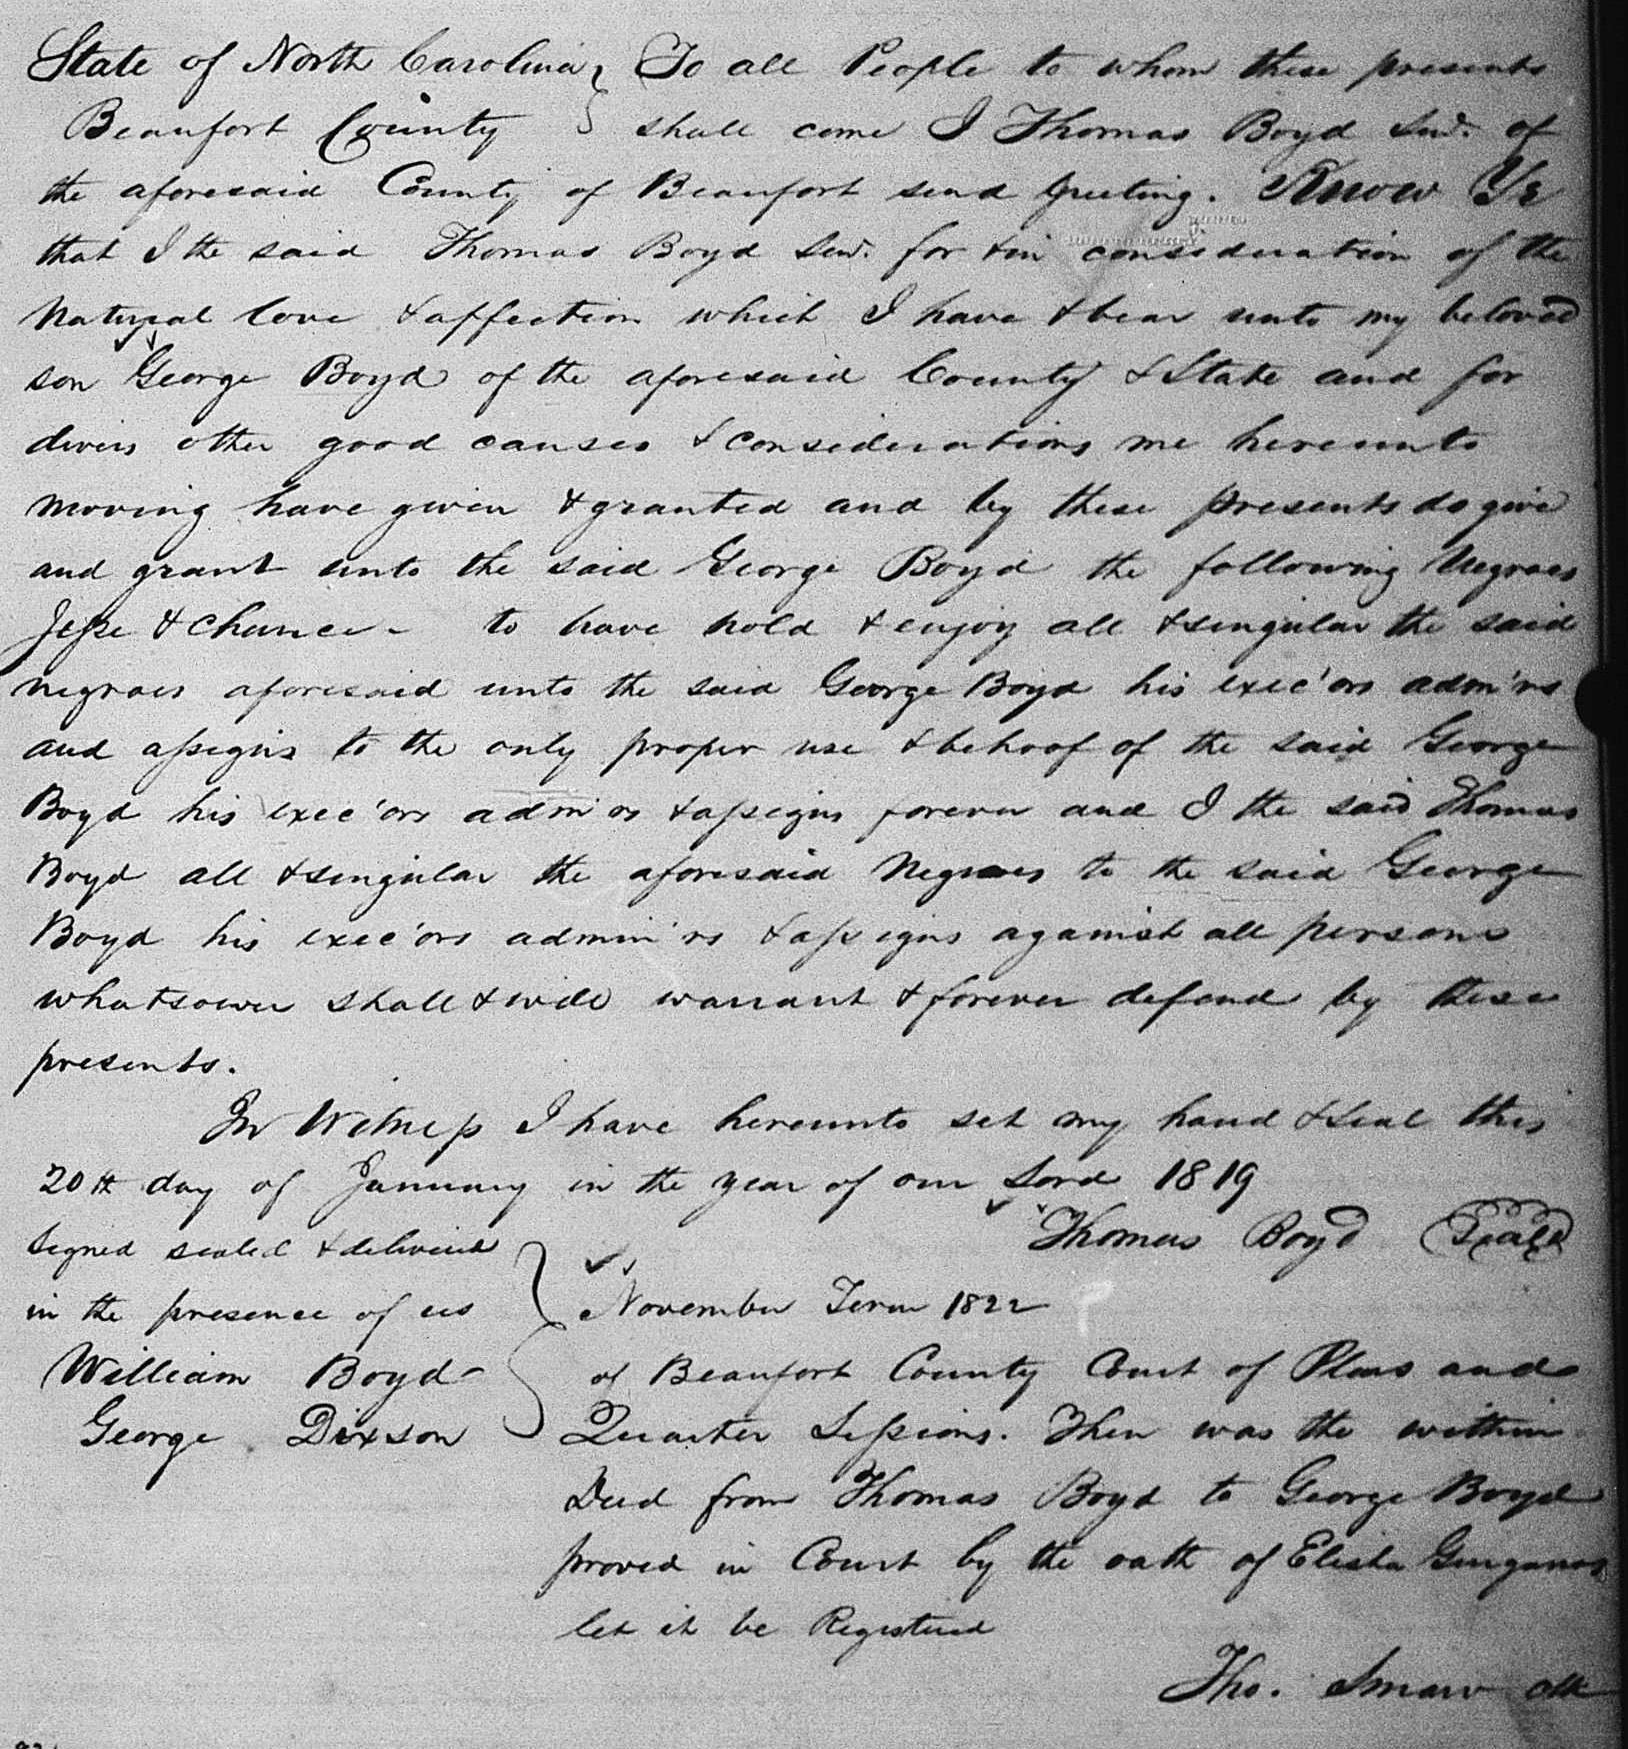 State of North Carolina } To all People to whom these presents
Beaufort County } shall come I Thomas Boyd Senr. of
the aforesaid County of Beaufort send Greeting. Know Ye
that I the said Thomas Boyd Senr. for & in consideration of the
Natural love & affection which I have & bear unto my beloved
son George Boyd of the aforesaid County & State and for
divers other good causes & considerations me hereunto
moving have given & granted and by these presents do give
and grant unto the said George Boyd the following Negroes
Jesse & Chance - to have hold & enjoy all & singular the said
negroes aforesaid unto the said George Boyd his exec'ors adm'rs
and assigns to the only proper use & behoof of the said George
Boyd his exec'ors adm'rs & assigns forever and I the said Thomas
Boyd all & singular the aforesaid Negroes to the said George
Boyd his exec'ors admin'rs & assigns against all persons
whatsoever shall & will warrant & forever defend by these
presents.
In Witness I have hereunto set my hand & seal this
20th day of January in the year of our Lord 1819
Thomas Boyd Seal
Signed sealed & delivered
in the presence of us
William Boyd
George Dixson
November Term 1822
of Beaufort County Court of Pleas and
Quarter Sessions. Then was the within
Deed from Thomas Boyd to George Boyd
proved in Court by the oath of Elisha
let it be Registered
Tho. Smaw Clk